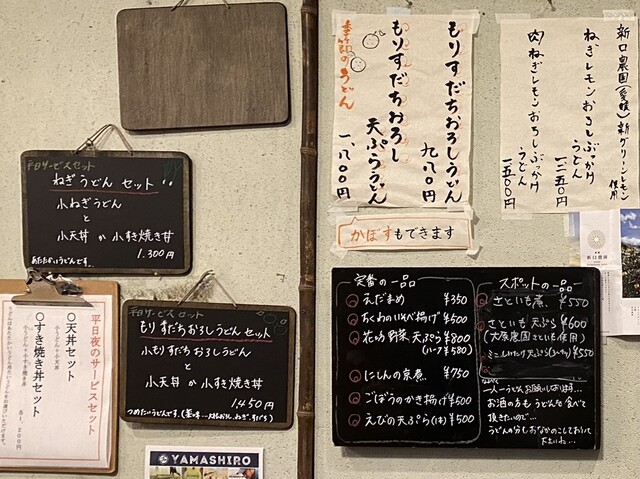 平日サービスセット
ねぎうどん セット
小ねぎうどん
と
小天丼 か 小すき焼き丼
1.300円
あたたかいうどんです。
平日サービスセット
もりすだちおろしうどん セット
小もりすだちおろしうどん
と
小天丼 か 小すき焼き丼
1,450円
平日夜のサービスセット
○天丼セット
○すき焼き丼セット
各1,200円
YAMASHIRO
もりすだちおろしうどん
九八〇円
もりすだちおろし
天ぷらうどん
一、八〇〇円
季節のうどん
かぼすもできます
新口農園(愛媛)新グリーンレモン
使用
ねぎレモンおろしぶっかけ
うどん
一二五〇円
肉ねぎレモンおろしぶっかけ
うどん
一五〇〇円
定番の一品
えだまめ ¥350
ちくわのいそべ揚げ ¥500
花咲野菜 天ぷら ¥800
(ハーフ ¥580)
にしんの京煮 ¥750
ごぼうのかき揚げ ¥500
えびの天ぷら(1本) ¥500
スポットの一品
さといも煮 ¥550
さといも天ぷら ¥600
(大原農園さといも使用)
¥550
一人一うどん、お願いします…
お酒の方もうどんを食べて
頂きたいので…
うどんの分しおなかのこしておいて
下さいね…